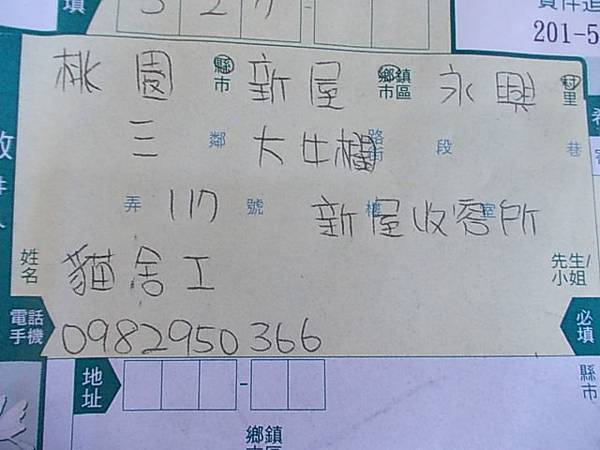 填 3 2 7 -
201-5
桃園 縣市 新屋 鄉鎮市區 永興 村里
三 鄰 大牛欄 路街 段 巷
弄 117 號 樓 新屋收容所 室
姓名 貓舍工 先生/小姐
電話手機 0982950366 必填
地址 - 縣市
鄉鎮